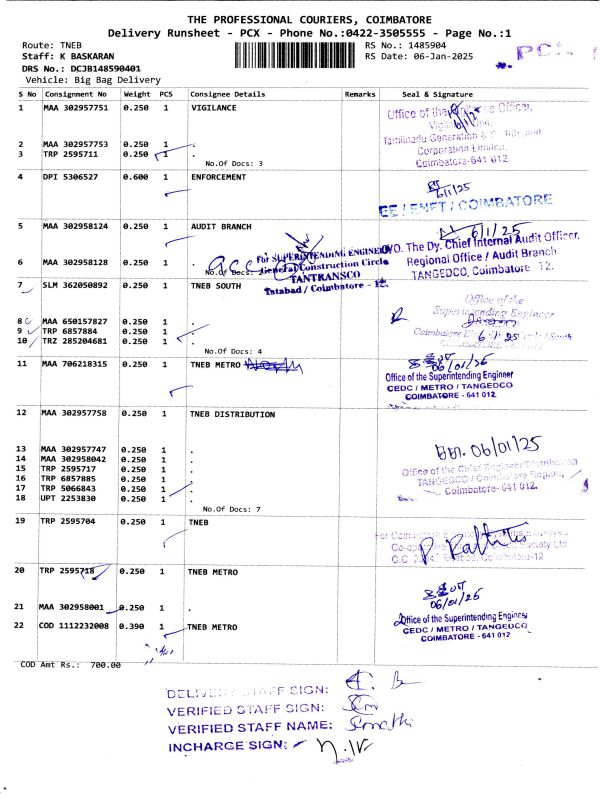 THE PROFESSIONAL COURIERS, COIMBATORE
Delivery Runsheet - PCX - Phone No.:0422-3505555 - Page No.:1
Route: TNEB
RS No.: 1485904
PCX
Staff: K BASKARAN
RS Date: 06-Jan-2025
DRS No.: DCJB148590401
Vehicle: Big Bag Delivery
S No Consignment No Weight PCS Consignee Details Remarks Seal & Signature
1 MAA 302957751 0.250 1 VIGILANCE
2 MAA 302957753 0.250 1 .
3 TRP 2595711 0.250 1 .
No.Of Docs: 3
Corporation Limited,
Coimbatore-641 012.
4 DPI 5306527 0.600 1 ENFORCEMENT
6/1/25
EE / ENFT / COIMBATORE
5 MAA 302958124 0.250 1 AUDIT BRANCH
6/1/25
O/O. The Dy. Chief Internal Audit Officer,
Regional Office / Audit Branch
TANGEDCO, Coimbatore - 12.
For SUPERINTENDING ENGINEER
General Construction Circle
TANTRANSCO
Tatabad / Coimbatore - 12.
6 MAA 302958128 0.250 1 .
No.Of Docs:
7 SLM 362050892 0.250 1 TNEB SOUTH
Office of the
Superintending Engineer
8 MAA 650157827 0.250 1 .
9 TRP 6857884 0.250 1 .
10 TRZ 285204681 0.250 1 .
No.Of Docs: 4
11 MAA 706218315 0.250 1 TNEB METRO
06/01/25
Office of the Superintending Engineer
CEDC / METRO / TANGEDCO
COIMBATORE - 641 012.
12 MAA 302957758 0.250 1 TNEB DISTRIBUTION
13 MAA 302957747 0.250 1 .
14 MAA 302958042 0.250 1 .
15 TRP 2595717 0.250 1 .
16 TRP 6857885 0.250 1 .
17 TRP 5066843 0.250 1 .
18 UPT 2253830 0.250 1 .
No.Of Docs: 7
06/01/25
Office of the Chief Engineer/Distribution
TANGEDCO / Coimbatore Region
Coimbatore- 641 012.
19 TRP 2595704 0.250 1 TNEB
20 TRP 2595718 0.250 1 TNEB METRO
21 MAA 302958001 0.250 1 .
22 COD 1112232008 0.390 1 TNEB METRO
06/01/25
Office of the Superintending Engineer
CEDC / METRO / TANGEDCO
COIMBATORE - 641 012
COD Amt Rs.: 700.00
DELIVERY STAFF SIGN:
VERIFIED STAFF SIGN:
VERIFIED STAFF NAME:
INCHARGE SIGN: